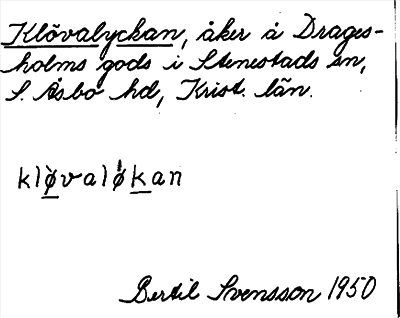 Klövalyckan, åker å Drages-
holms gods i Stenestads sn,
S. Åsbo hd, Krist. län.
klø̀valø̍kan
Bertil Svensson 1950